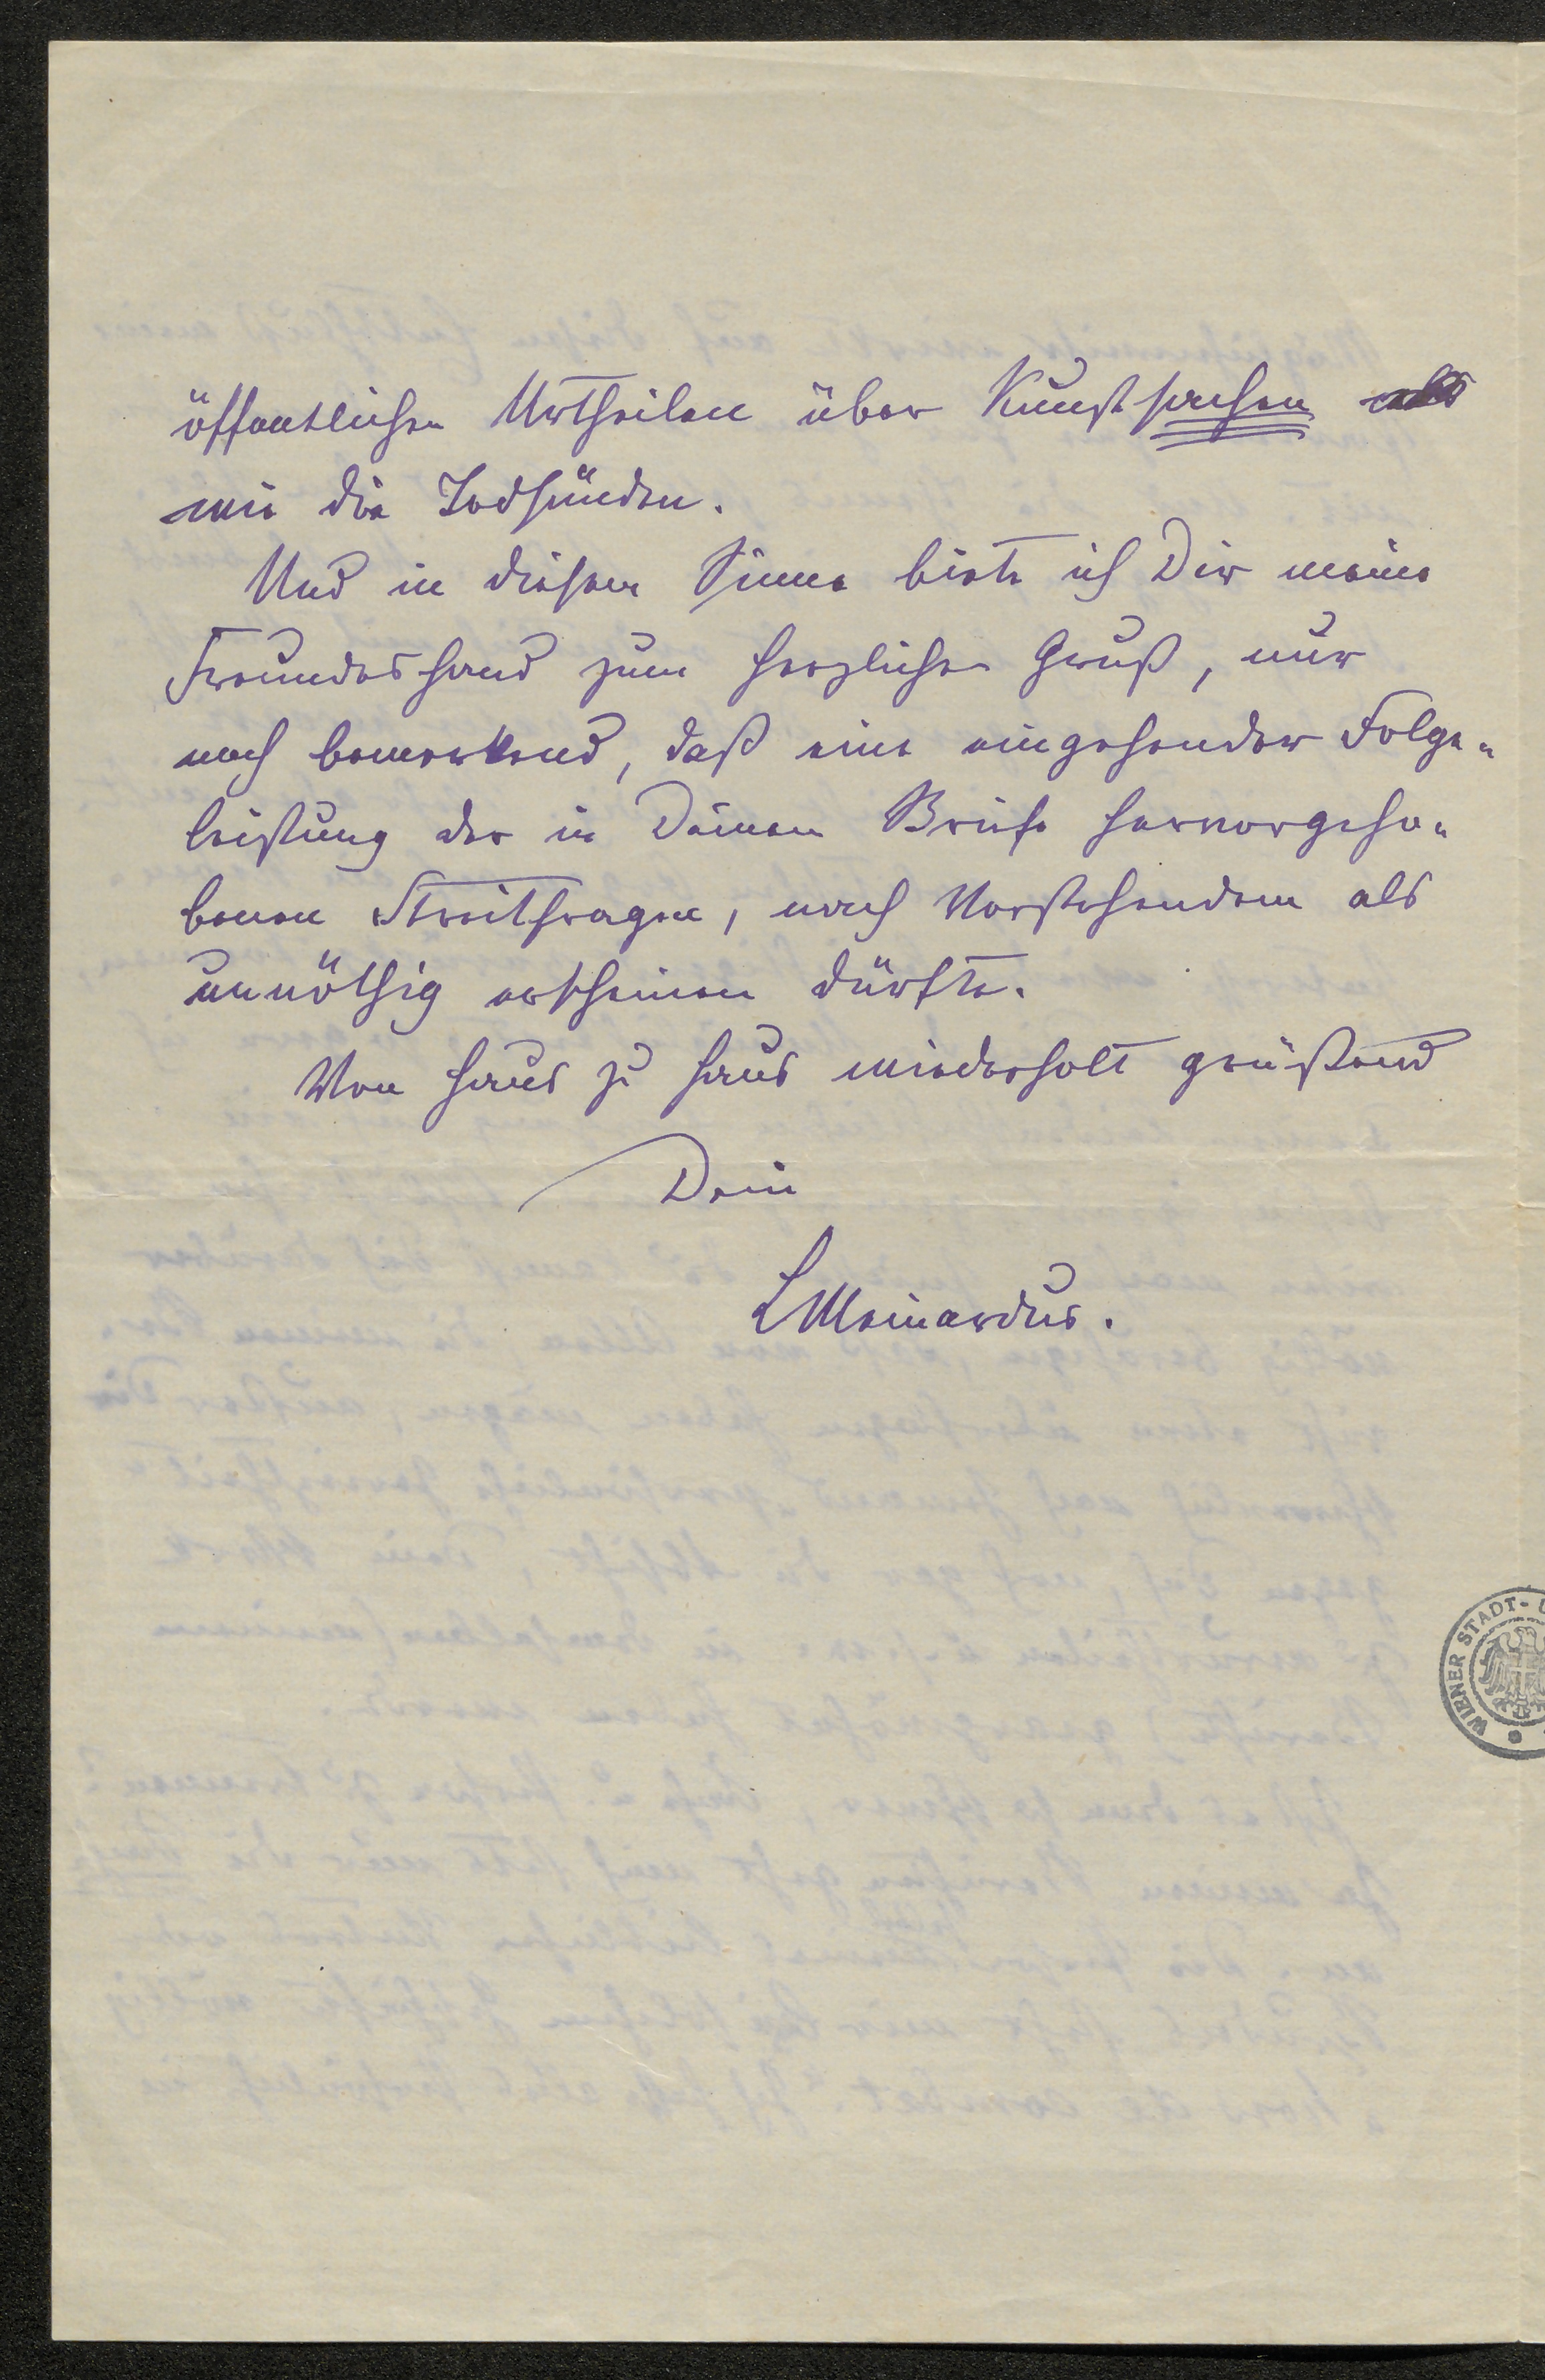 öffentlichen Urtheilen über Kunstsachen
wie die Todsünden.
Und in diesem Sinne biete ich Dir meine
Freundeshand zum herzlichen Gruß, nur
noch bemerkend, daß eine eingehender Folge-
leistung der in Deinem Briefe hervorgeho-
benen Streitfragen, nach Vorstehendem als
unnöthig erscheinen dürfte.
Von Haus zu Haus wiederholt grüßend
Dein
LMeinardus.
WIENER STADT-